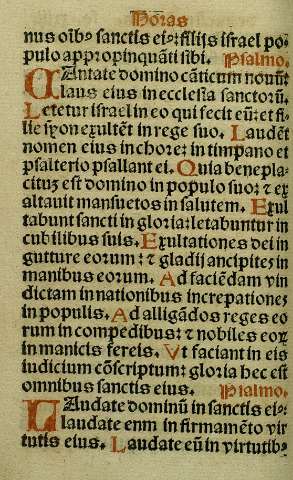 Horas
nus oīb⁹ sanctis eiꝰ: filijs israel po⸗
pulo appropinquāti sibi. Psalmo.
CAntate domino cāticum nouū:
laus eius in ecclesia sanctorū.
Letetur israel in eo qui fecit eū: et fi⸗
lie syon exultēt in rege suo. Laudēt
nomen eius in choro: in timpano et
psalterio psallant ei. Quia benepla⸗
citū est domino in populo suo: ⁊ ex
altauit mansuetos in salutem. Exul
tabunt sancti in gloria: letabuntur in
cubilibus suis. Exultationes dei in
gutture eorum: ⁊ gladij ancipites in
manibus eorum. Ad faciēdam vin
dictam in nationibus increpationes
in populis. Ad alligādos reges eo
rum in compedibus: ⁊ nobiles eoꝝ
in manicis fereis. Vt faciant in eis
iudicium cōscriptum: gloria hec est
omnibus sanctis eius. Psalmo.
LAudate dominū in sanctis eiꝰ:
laudate enm in firmamēto vir
tutis eius. Laudate eū in virtutibꝰ